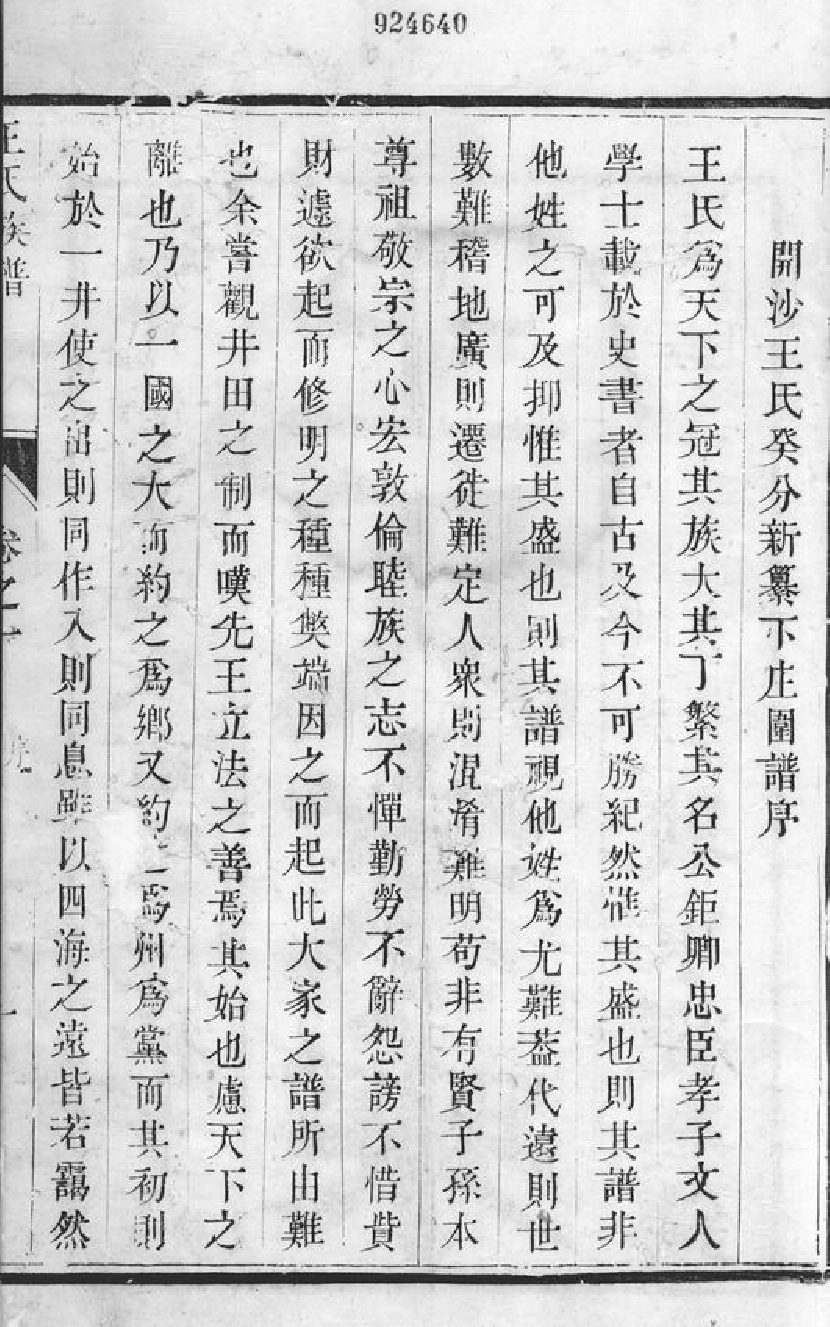 924640
開沙王氏癸分新纂下庄圍譜序
王氏爲天下之冠其族大其丁繁其名公鉅卿忠臣孝子文人
學士載於史書者自古及今不可勝紀然惟其盛也則其譜非
他姓之可及抑惟其盛也則其譜視他姓爲尤難葢代遠則世
數難稽地廣則遷徙難定人衆則混淆難明苟非有賢子孫本
尊祖敬宗之心宏敦倫睦族之志不憚勤勞不辭怨謗不惜貲
財遽欲起而修明之種種獘端因之而起此大家之譜所由難
也余嘗觀井田之制而嘆先王立法之善焉其始也慮天下之
離也乃以一國之大而約之爲鄉又約爲州爲黨而其初則
始於一井使之出則同作入則同息雖以四海之遠皆若靄然
王氏族譜
卷之一
序
一